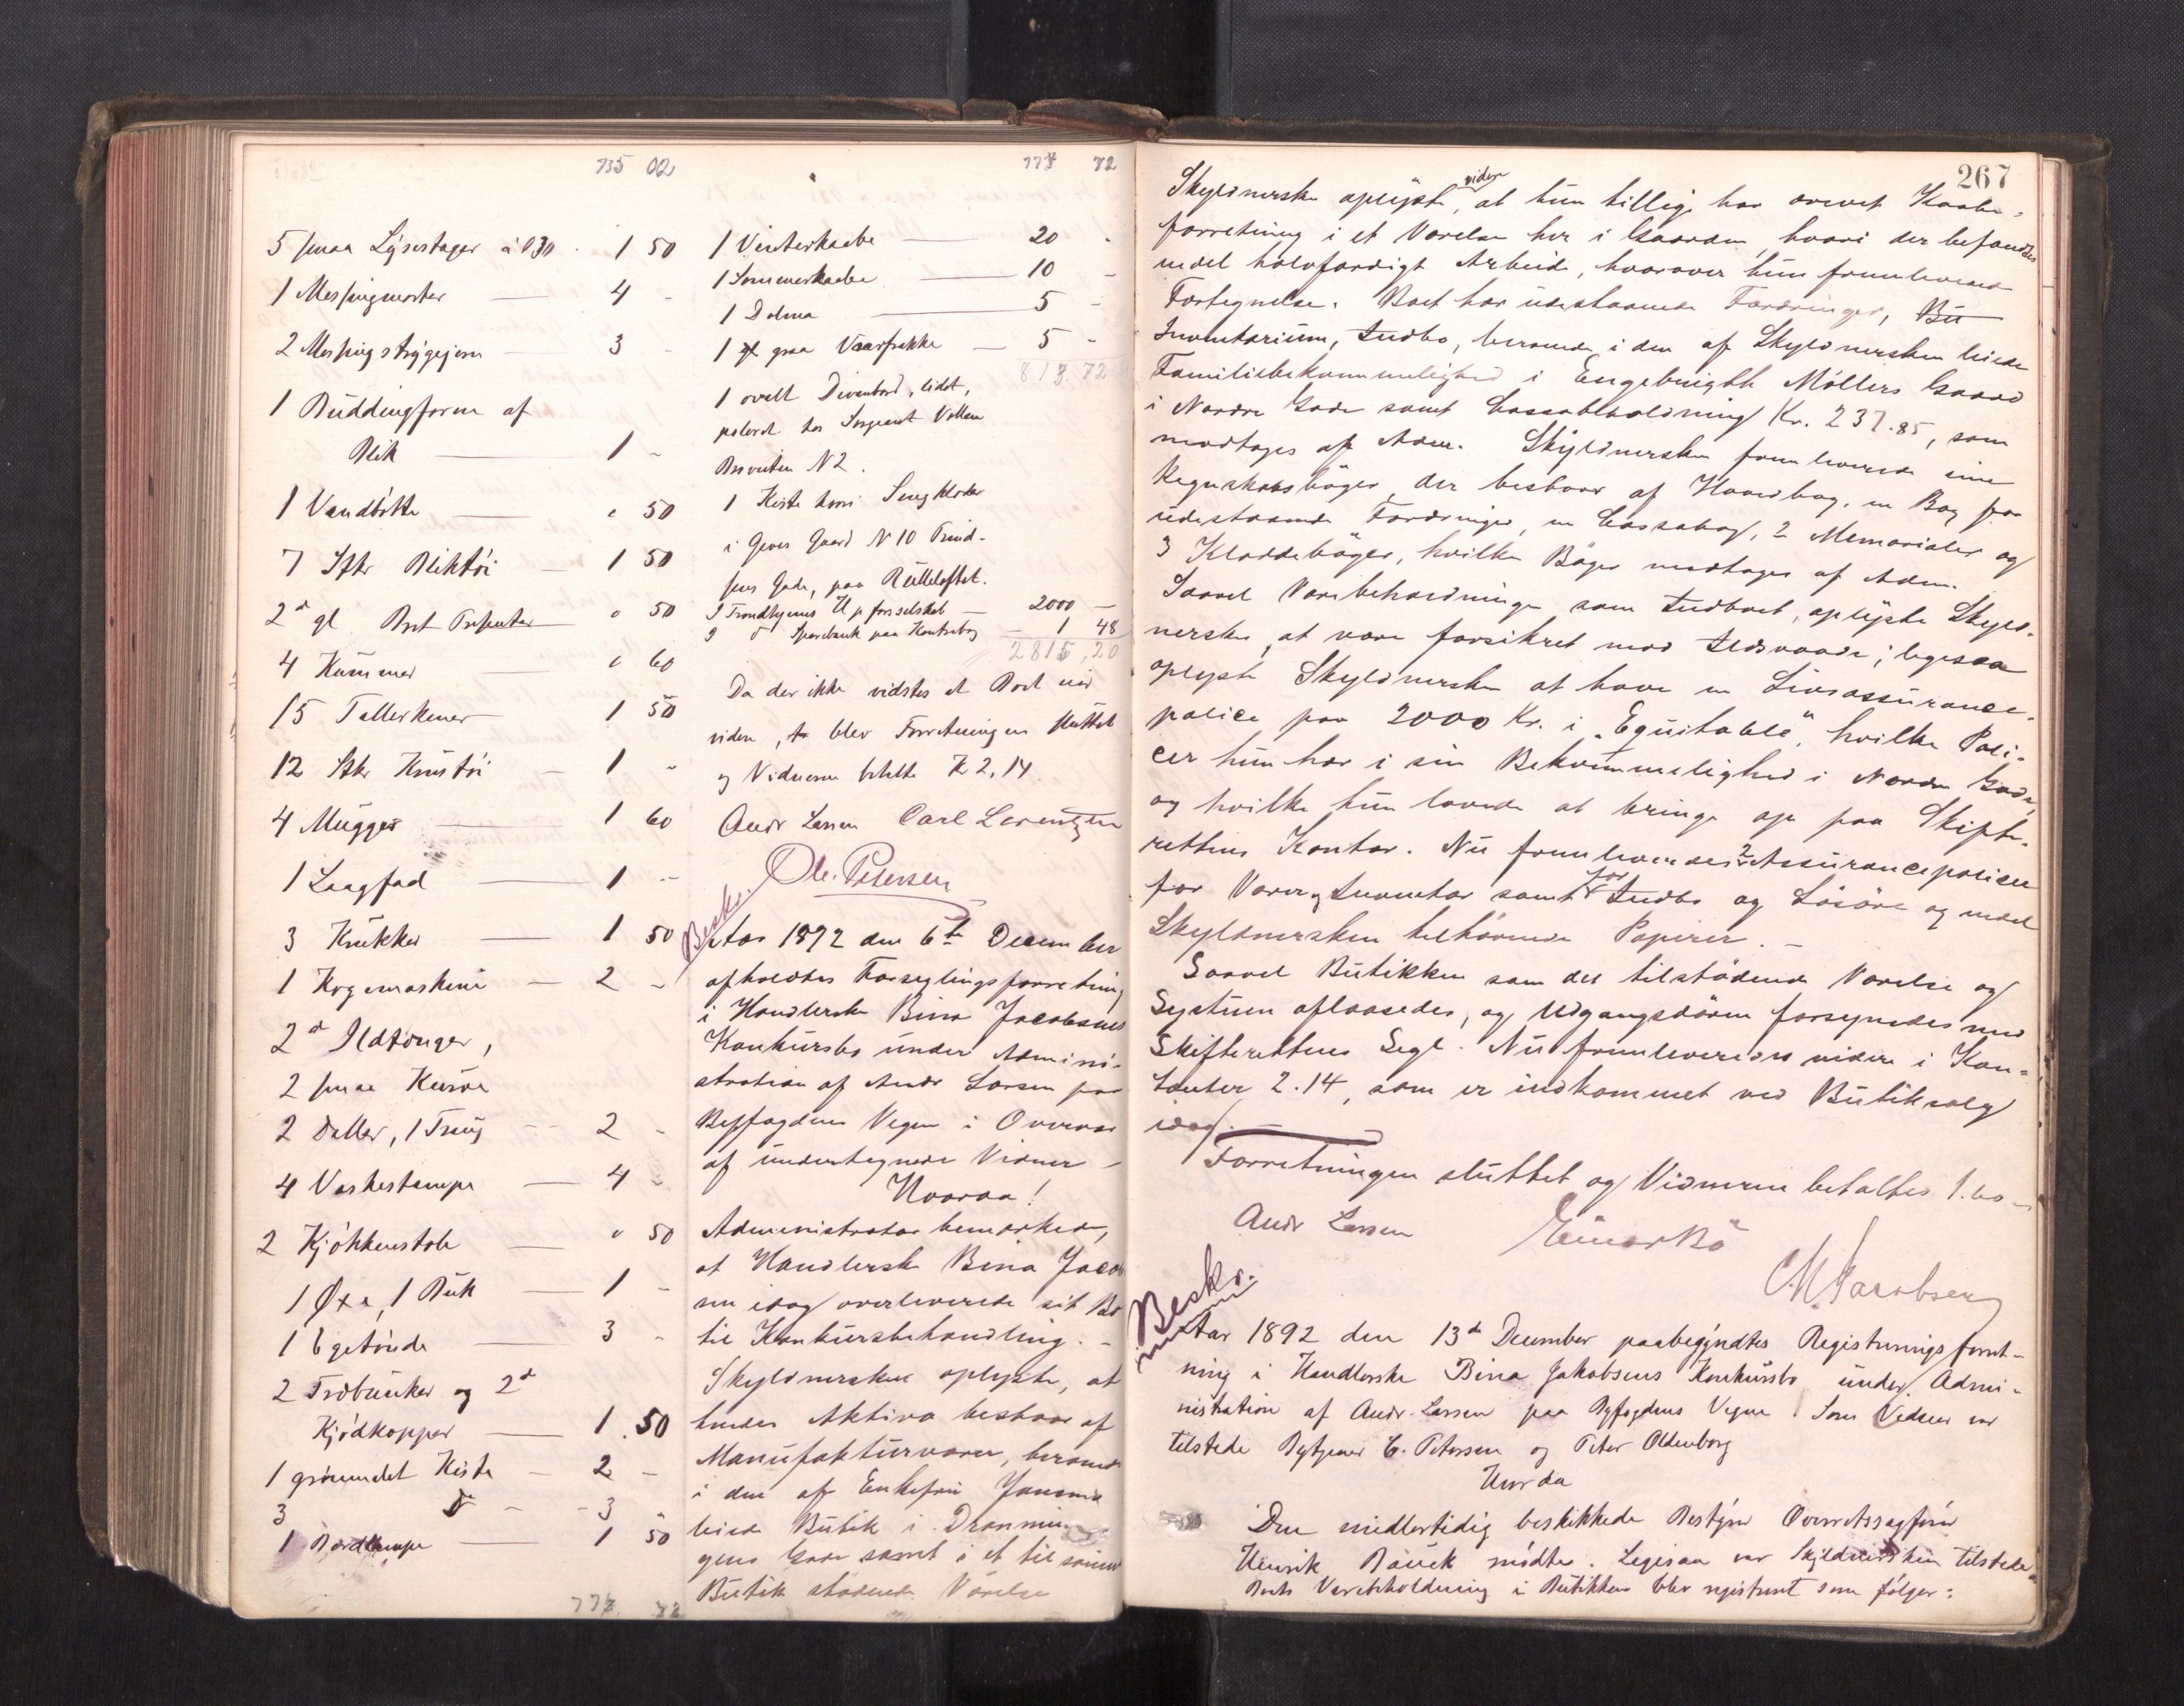 735 02
5 smaa Lysestager à 0,30 1 50
1 Messingmorter 4 -
2 Messingstrygejern 3 -
1 Buddingform af
Blik 1 -
1 Vandbøtte " 50
7 Stkr Bliktøi 1 50
2 d gl. " 50
4 Kummer " 60
15 Tallerkener 1 50
12 Stkr Krustøi 1 -
4 Mugger 1 60
1 Laagfad 1 -
3 Krukker 1 50
1 Kogemaskine 2 -
2 d Ildtønger,
2 smaa Kurve
2 Daller, 1 Traug 2 -
4 Vaskestampe 4 -
2 Kjøkkenstole " 50
1 Øxe, 1 Buk 1 -
1 Egetønde 3 -
2 Træbunker og 2 d
Kjødkopper 1.50
1 grønmalet Kiste 2 -
3 d 3 -
1 Bordlampe 1 50
777. 72
777 72
1 Vinterkaabe 20 -
1 Sommerkaabe 10 -
1 Dolma 5 -
1 graa Vaarfrakke 5 -
817 72
1 ovalt Divanbord, lidet,
poleret hos Sergeant Vollan
N 2.
1 Kiste hvori Sengklæder
i Gjevers Gaard N 10 Prind-
sens Gade, paa Rulleloftet.
I Trondhjems 2000 -
I d Sparebank paa Kontrabog 1 48
2815,20
Da der ikke vidstes at Boet eied
videre, blev Forretningen sluttet
og Vidnerne betalte K 2,14.
Andr Larsen Carl Lorentzen
Ole. Petersen
Beskr.
Aar 1892 den 6te December
afholdtes Forseglingsforretning
i Handlerske Bina Jacobsens
Konkursbo under Admini-
stration af Andr Larsen paa
Byfogdens Vegne i Overvær
af undertegnede Vidner -
Hvoraa!
Administrator bemærkede,
at Handlerske Bina Jacob
sen idag overleverede sit Bo
til Konkursbehandling. -
Skyldnersken oplyste, at
hendes Aktiva bestaar af
Manufakturvarer, beroende
i den af Enkefru Jansens
leiede Butik i Dronnin-
gens Gade samt i et til samme
Butik stødende Værelse
267
Skyldnerske oplyste videre, at hun tillige har drevet Kaabe-
forretning i et Værelse her i Gaarden, hvori der befandtes
endel halvfærdigt Arbeide, hvorover hun fremleverede
Fortegnelse. Boet har udestaaende Fordringer, Bu
Inventarium, Indbo, beroende i den af Skyldnersken leiede
Familiebekvemmelighed i Engebrigth Møllers Gaard
i Nordre Gade samt Cassabeholdning Kr. 237.85, som
modtages af Adm. Skyldnersken fremleverede sine
Regnskabsbøger, der bestaar af Hovedbog, en Bog for
udestaaende Fordringer, en Cassabog, 2 Memorialer og
3 Kladdebøger, hvilke Bøger modtages af Adm.
Saavel Varebeholdningen som Indboet, oplyste Skyld-
nersken, at være forsikret mod Ildsvaade; ligesaa
oplyste Skyldnersken at have en Livsassurance-
police paa 2000 Kr. i "Equitable", hvilke Poli-
cer hun har i sin Bekvemmelighed i Nordre Gade
og hvilke hun lovede at bringe op paa Skifte-
rettens Kontor. Nu fremleveredes 2 Assurancepolicer
for Varer og Inventar samt for Indbo og Løsøre og endel
Skyldnersken tilhørende Papirer. -
Saavel Butikken som det tilstødende Værelse og
Systuen aflaasedes, og Udgangsdøren forsynedes med
Skifterettens Segl. Nu fremleveredes videre i Kon-
tanter 2.14, som er indkommet ved Butiksalg
idag. -
Forretningen sluttet og Vidnerne betaltes 1.60 -
Andr Larsen Einar Bö
CM Jacobsen
Beskr.
Aar 1892 den 13de December paabegyndtes Registreringsforret-
ning i Handlerske Bina Jakobsens Konkursbo under Admi-
nistration af Andr. Larsen paa Byfogdens Vegne. Som Vidner var
tilstede Bytjener C. Petersen og Peter Oldenborg
Hvorda
Den midlertidig beskikkede Bestyrer Overretssagfører
Henrik Bauck mødte. Ligesaa var Skyldnersken tilstede
Boets Varebeholdning i Butikken blev registreret som følger: